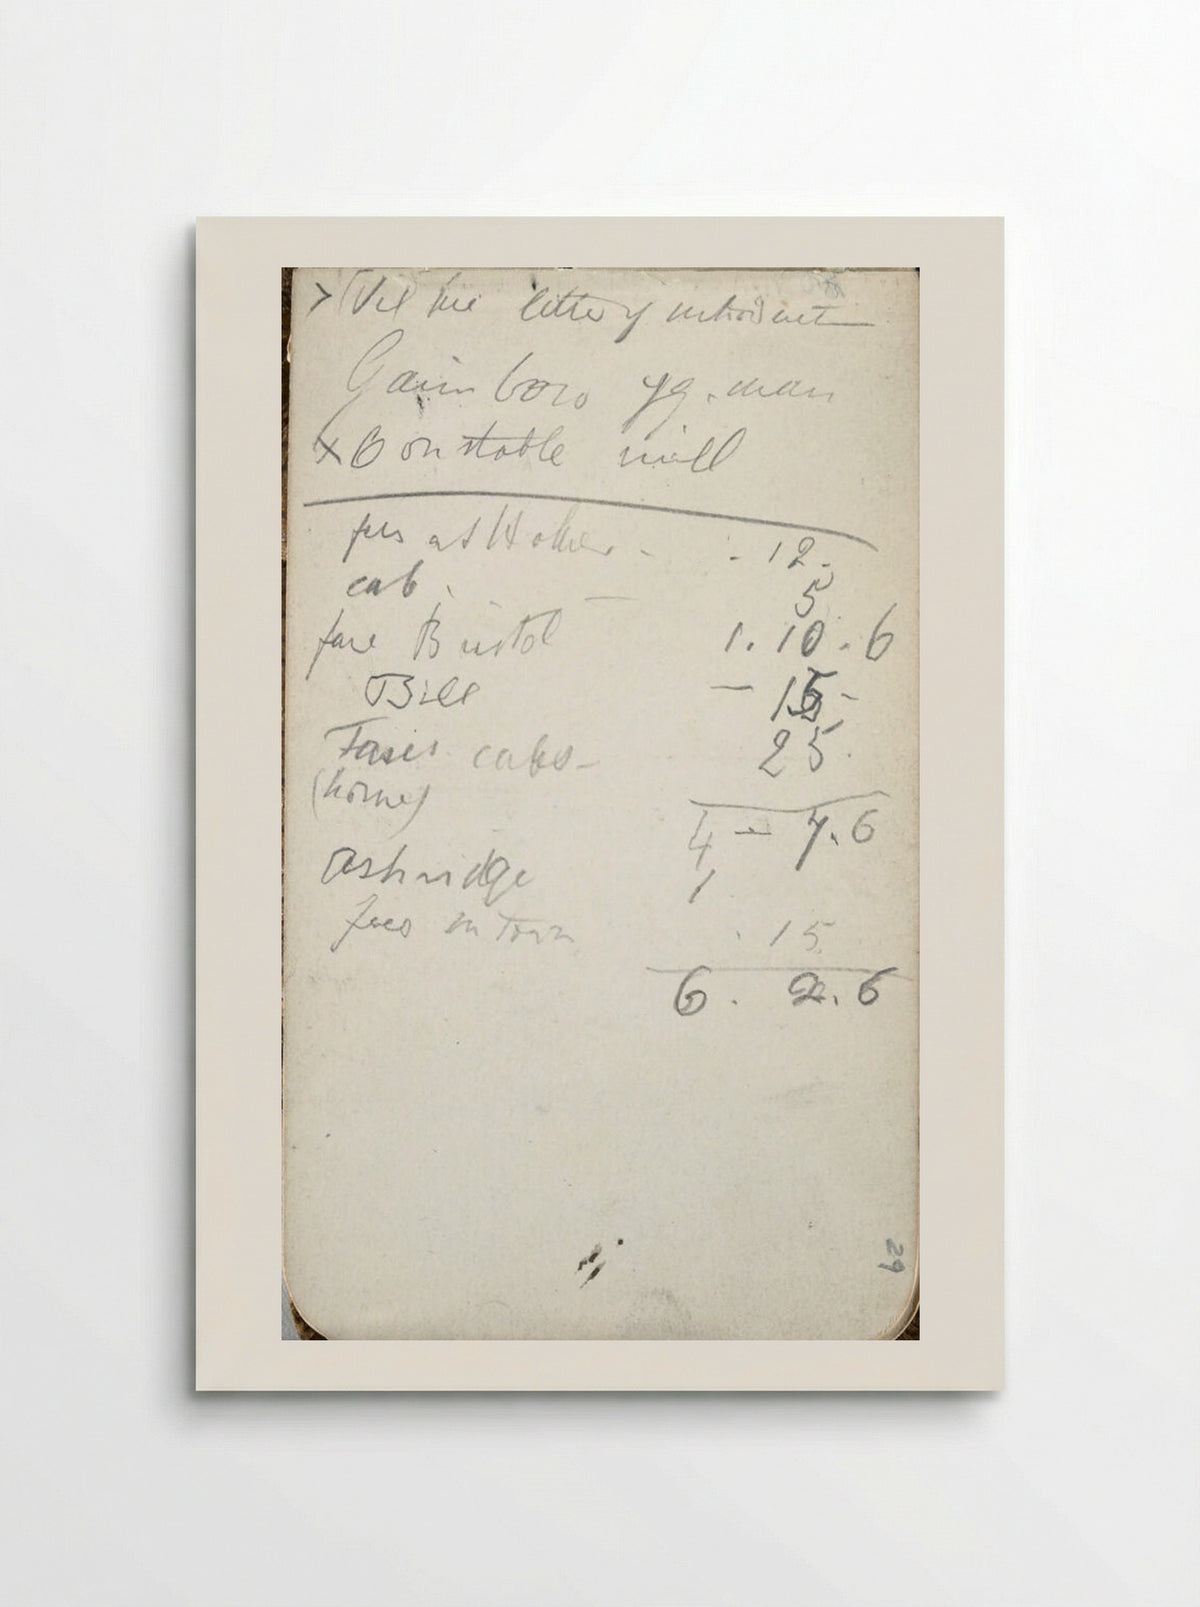 letter of introduct
Gainsboro yg. man
x Constable mill
fees at Holker - - 12 -
cab. - 5
fare Bristol 1. 10. 6
Bill - 15 -
Fares cabs - 25.
(home)
4 - 7. 6
Ashridge 1
fees in town . 15
6. 2. 6
29